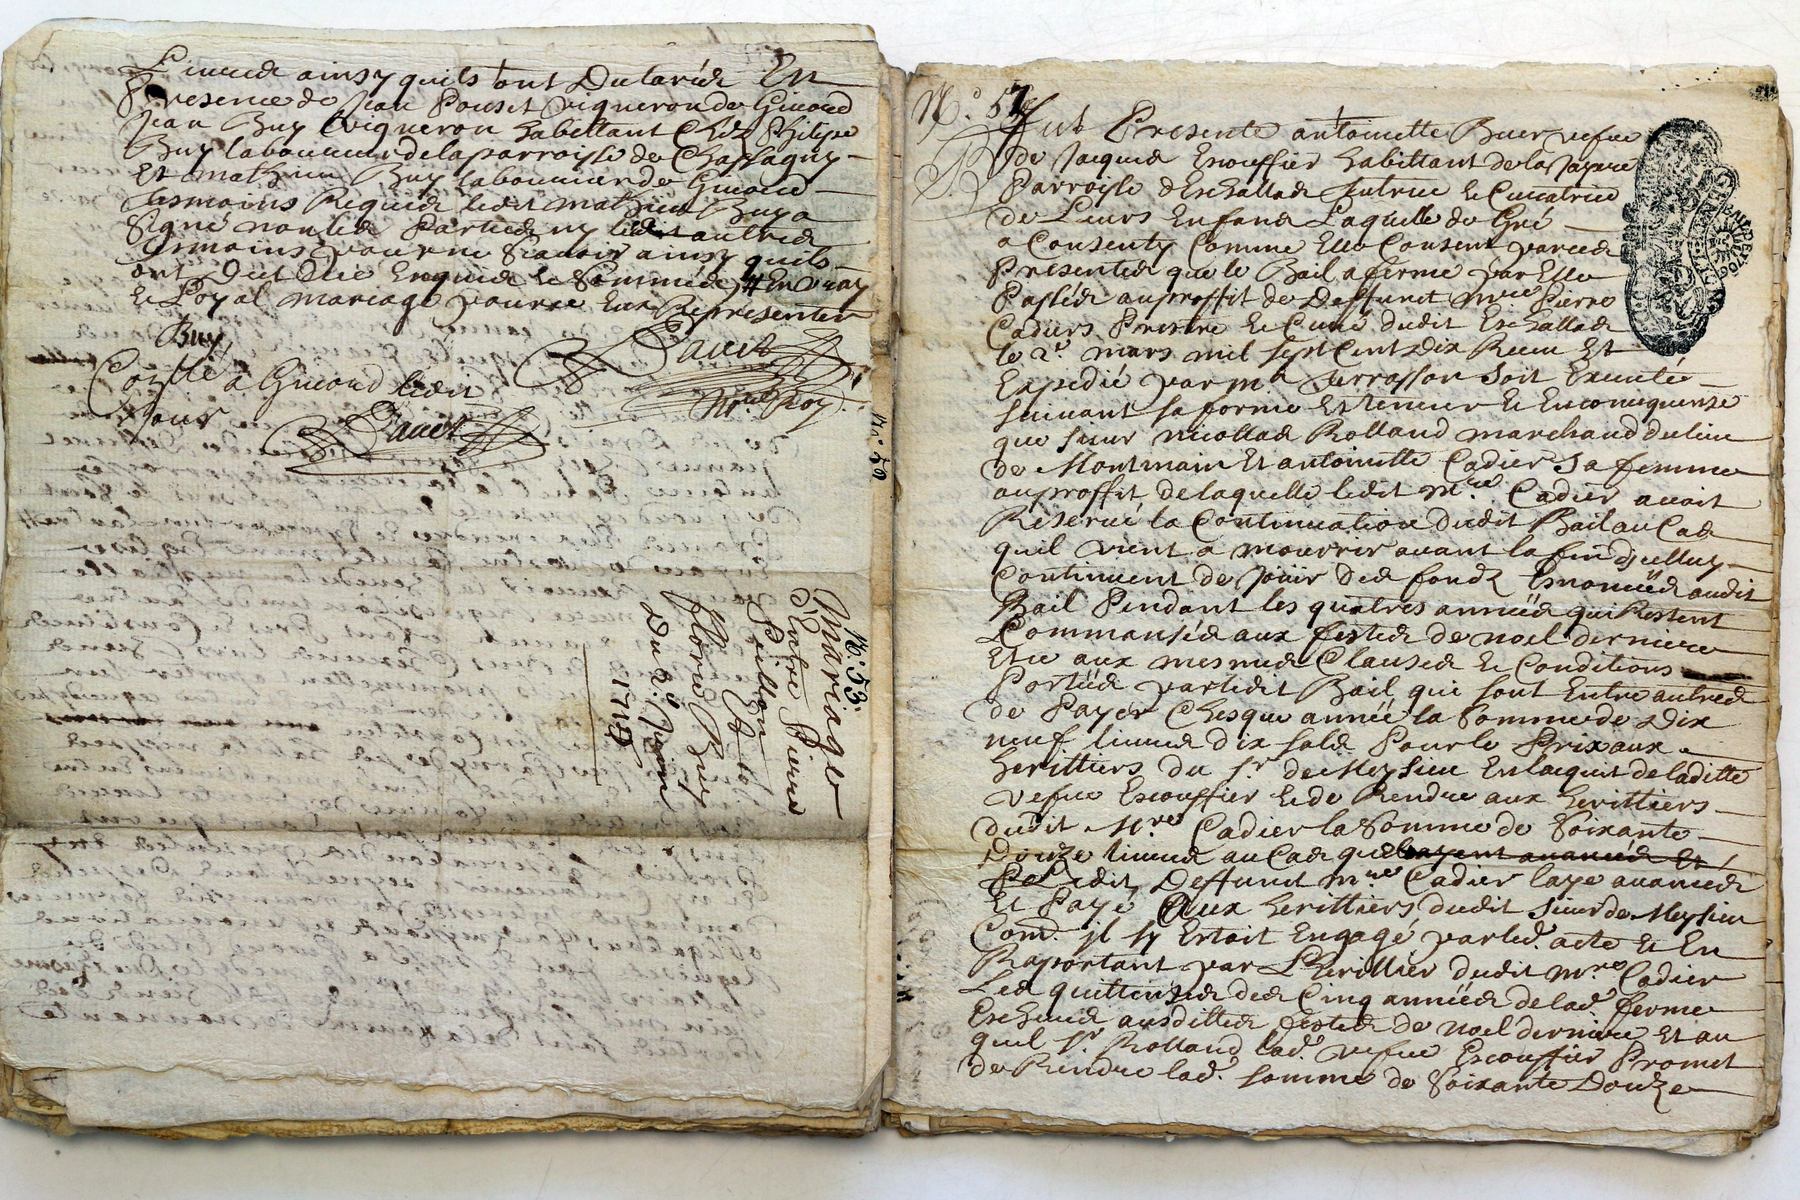 Livrer ainsy quils ont Declaréé En
Presence de Jean Pouset vigneron de Givord
Jean Buy vigneron habittant Chez Philipe
Buy laboureur de la parroisse de Chassagny
Et Mathieu Buy laboureur de Givord
tesmoins Requis ledit Mathieu Buy a
Signé non les Parties ny ledit autre
tesmoins pour ne Scavoir ainsy quils
ont Dit De ce Enquis et Sommés # En vray
et Loyal mariage pour ce Eux Representer
Buy
Dauet
No.re Roy.
Conttlé a Givord ledit
Jour
Dauet
N.° 50
N.° 53.
Mariage
Entre Pierre
Peillon
Et
Florie Buy
Du 2.e Juin
1715
N.° 57
Fut Presente antoinette Buer vefue
de Jacques Escouffier habittant de la
Parroisse dEschallas tutrice et Curatrice
de Leurs Enfans Laquelle de Gré
a Consenty Comme Elle Consent par ces
Presentes que le Bail a ferme par Elle
Passée au proffit de Deffunct Mre Pierre
Cadiers Prestre et Curé dudit Eschallas
le 2.e mars mil sept Cent Dix Receu Et
Expedié par me Terrasson soit Executé
suivant sa forme Et teneur et En consequense
que sieur nicollas Rolland marchand du lieu
de Montmain Et antoinette Cadier Sa femme
au proffit de laquelle ledit Mre Cadier avoit
Reservé la Continuation dudit Bail au Cas
quil vient a mourrir avant la fin dicelluy
Continuent de Joüir des fondz Enoncéés audit
Bail Pendant les quatres annéés qui Restent
Commanséés aux festes de noel derniere
Et ce aux mesmes Clauses et Conditions
Portéés par ledit Bail qui sont Entre autres
de Payer Chesque annéé la Somme de Dix
neuf livres dix sols Pour le Prix aux
herittiers du sr de Meysieu En lacquit de laditte
vefue Escouffier et de Rendre aux herittiers
dudit Mre Cadier la Somme de Soixante
Douze livres au Cas que
Ledit Deffunct Mre Cadier laye avancéé
Et Payé Aux herittiers dudit sieur de Meysieu
Com.e jl sy Estoit Engagé par led. acte et En
Raportant par Lherittier dudit Mre Cadier
Les quittenses des Cinq annéés de lad.e ferme
Escheües ausdittes festes de noel derniere Et au
quel sr. Rolland lad.e vefue Escouffier Promet
de Rendre lad.e somme de Soixante Douze